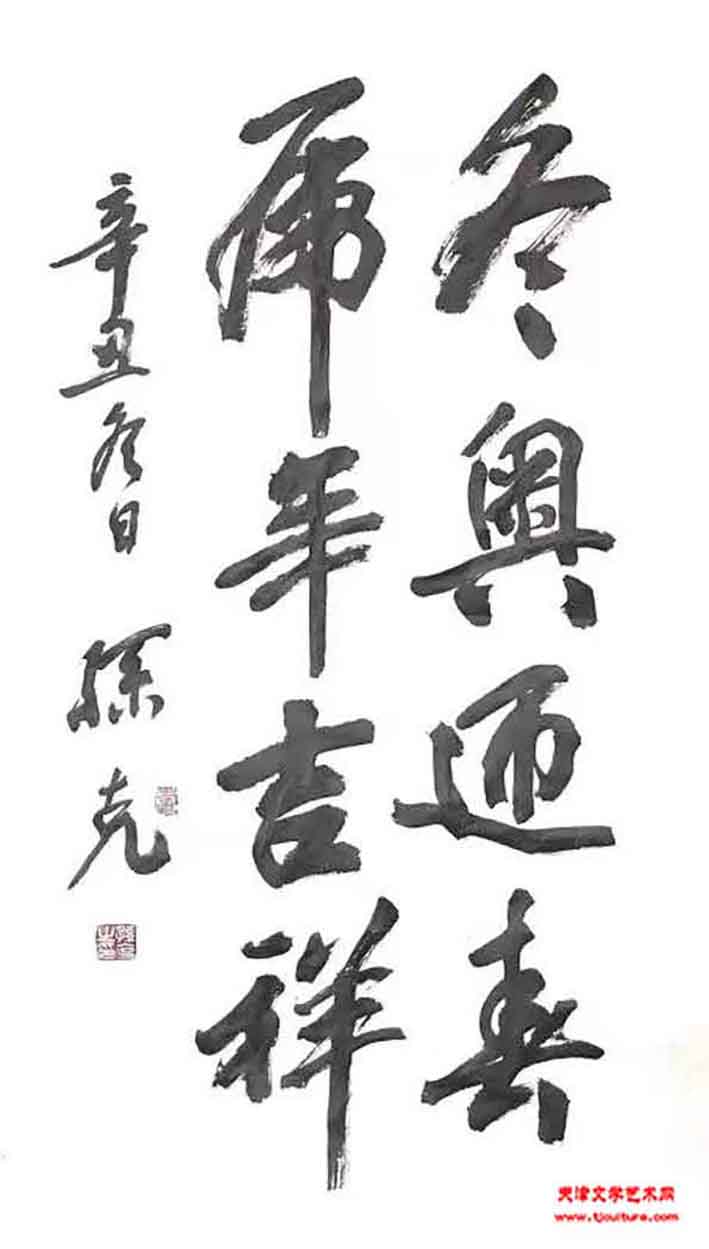 冬奥迎春
虎年吉祥
辛丑冬日 孫克
天津文学艺术网
www.tjculture.com